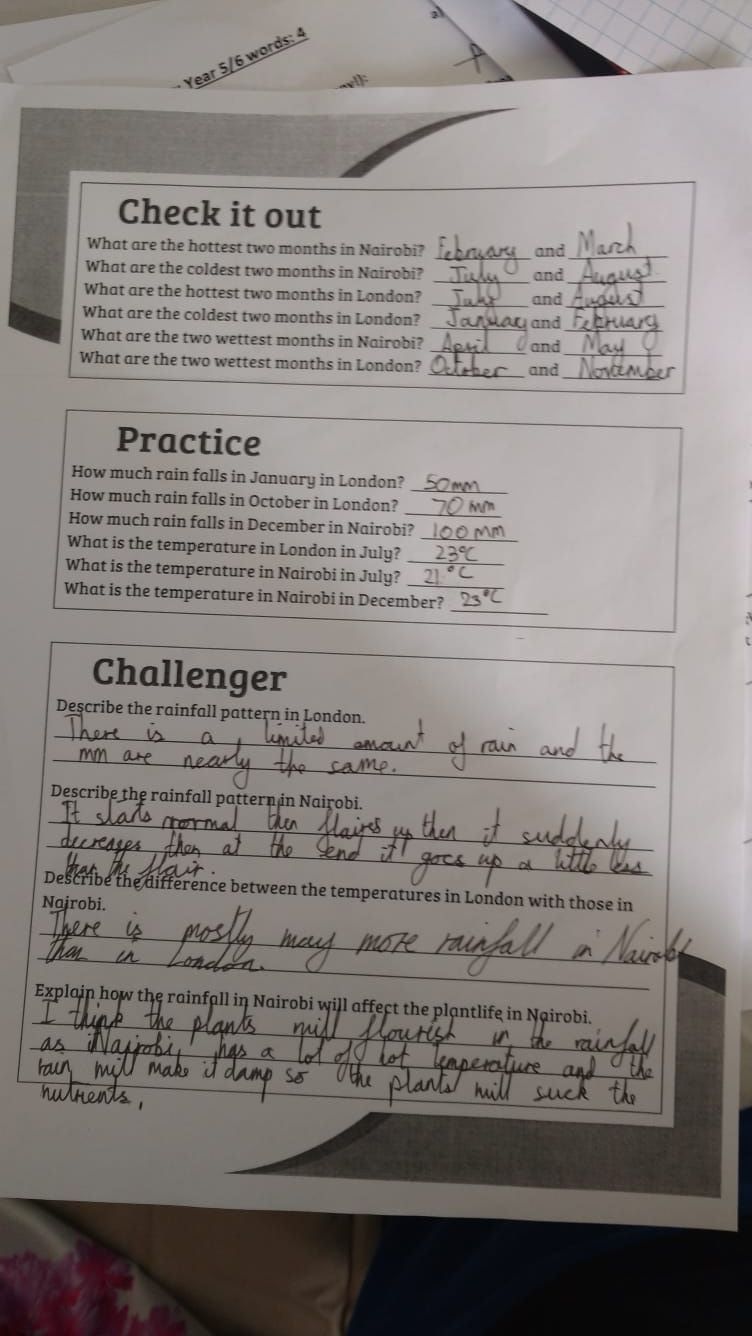 a)
Year 5/6 words: 4
Check it out
What are the hottest two months in Nairobi? February and March
What are the coldest two months in Nairobi? July and August
What are the hottest two months in London? July and August
What are the coldest two months in London? January and February
What are the two wettest months in Nairobi? April and May
What are the two wettest months in London? October and November
Practice
How much rain falls in January in London? 50mm
How much rain falls in October in London? 70 mm
How much rain falls in December in Nairobi? 100 mm
What is the temperature in London in July? 23°C
What is the temperature in Nairobi in July? 21°C
What is the temperature in Nairobi in December? 23°C
Challenger
Describe the rainfall pattern in London.
There is a limited amount of rain and the
mm are nearly the same.
Describe the rainfall pattern in Nairobi.
It starts normal then flaires up then it suddenly
decreases then at the end it goes up a little less
than the flair.
Describe the difference between the temperatures in London with those in
Nairobi.
There is mostly may more rainfall in Nairobi
than in London.
Explain how the rainfall in Nairobi will affect the plantlife in Nairobi.
I think the plants will flourish in the rainfall
as Nairobi has a lot of hot temperature and the
rain will make it damp so the plants will suck the
nutrients.